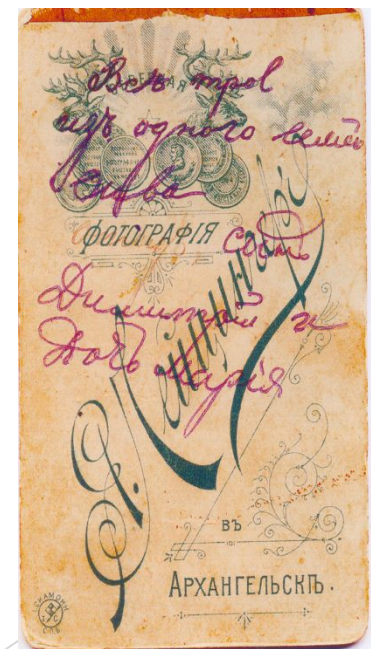 СѢВЕРНАЯ
Все трое
изъ одного семей
ства
ФОТОГРАФІЯ
сынъ
Дмитрій и
Дочь Марія
Я. Лейцингеръ
въ
АРХАНГЕЛЬСКѢ.
СКАМОНИ
СПБ